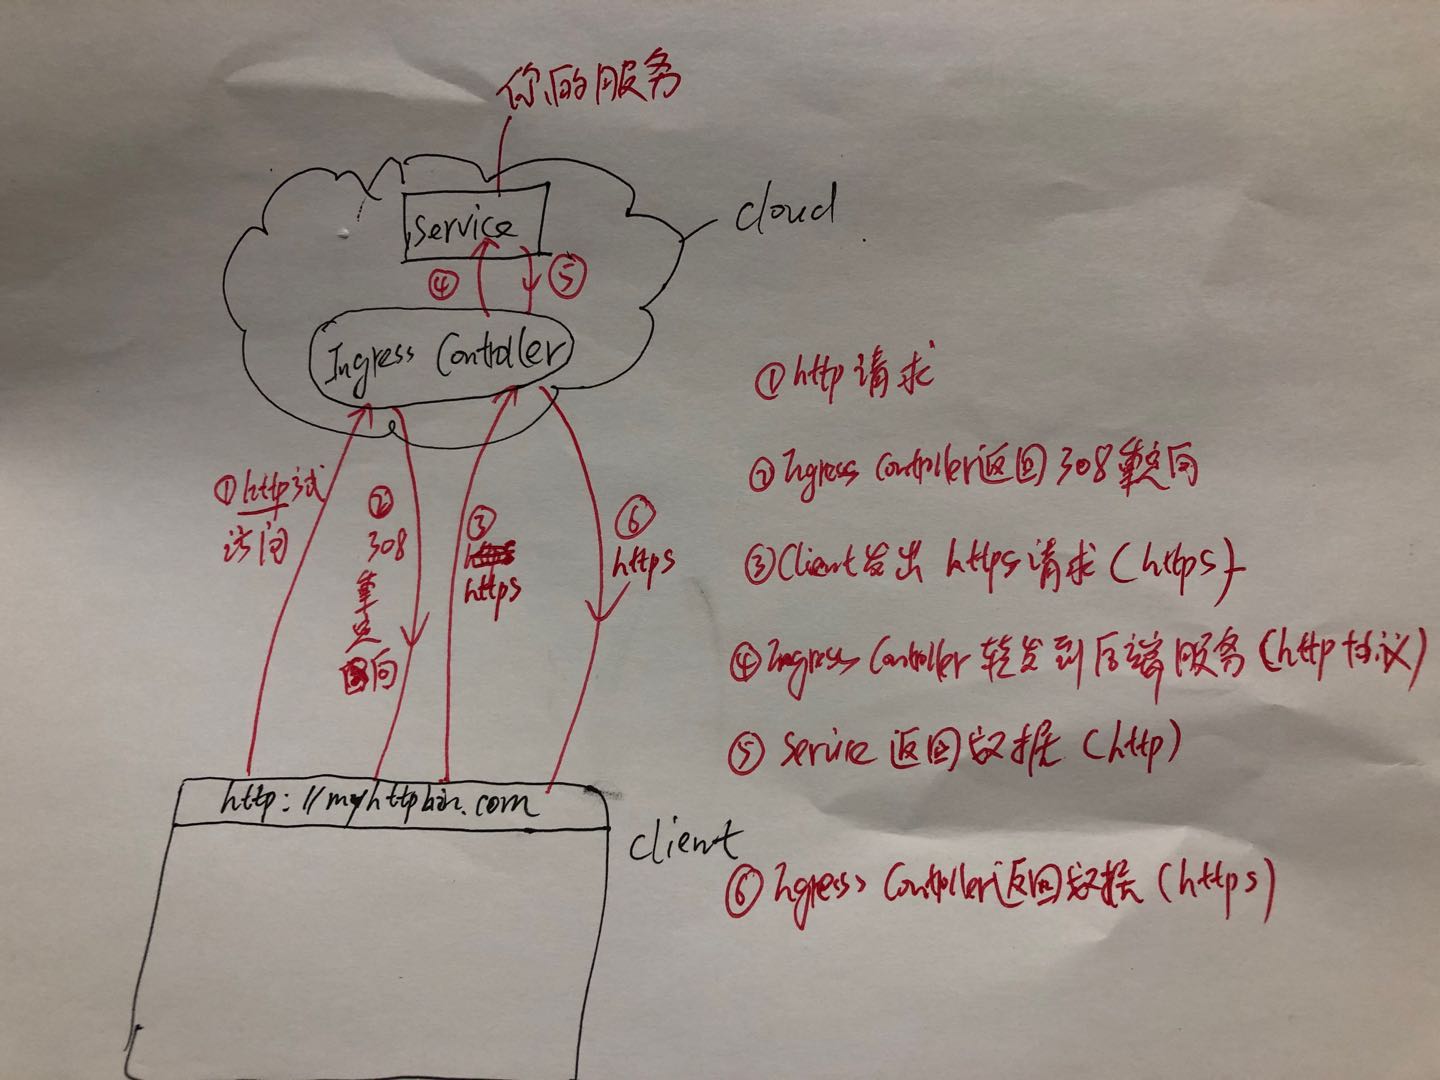 你的服务
Service
cloud
④
⑤
Ingress Controller
① http 请求
② Ingress Controller 返回 308 重定向
③ Client 发出 https 请求 (https)
④ Ingress Controller 转发到后端服务 (http 协议)
⑤ Service 返回数据 (http)
⑥ Ingress Controller 返回数据 (https)
① http 式
访问
②
308
重
定
向
③
https
⑥
https
http://myhttpbin.com
client